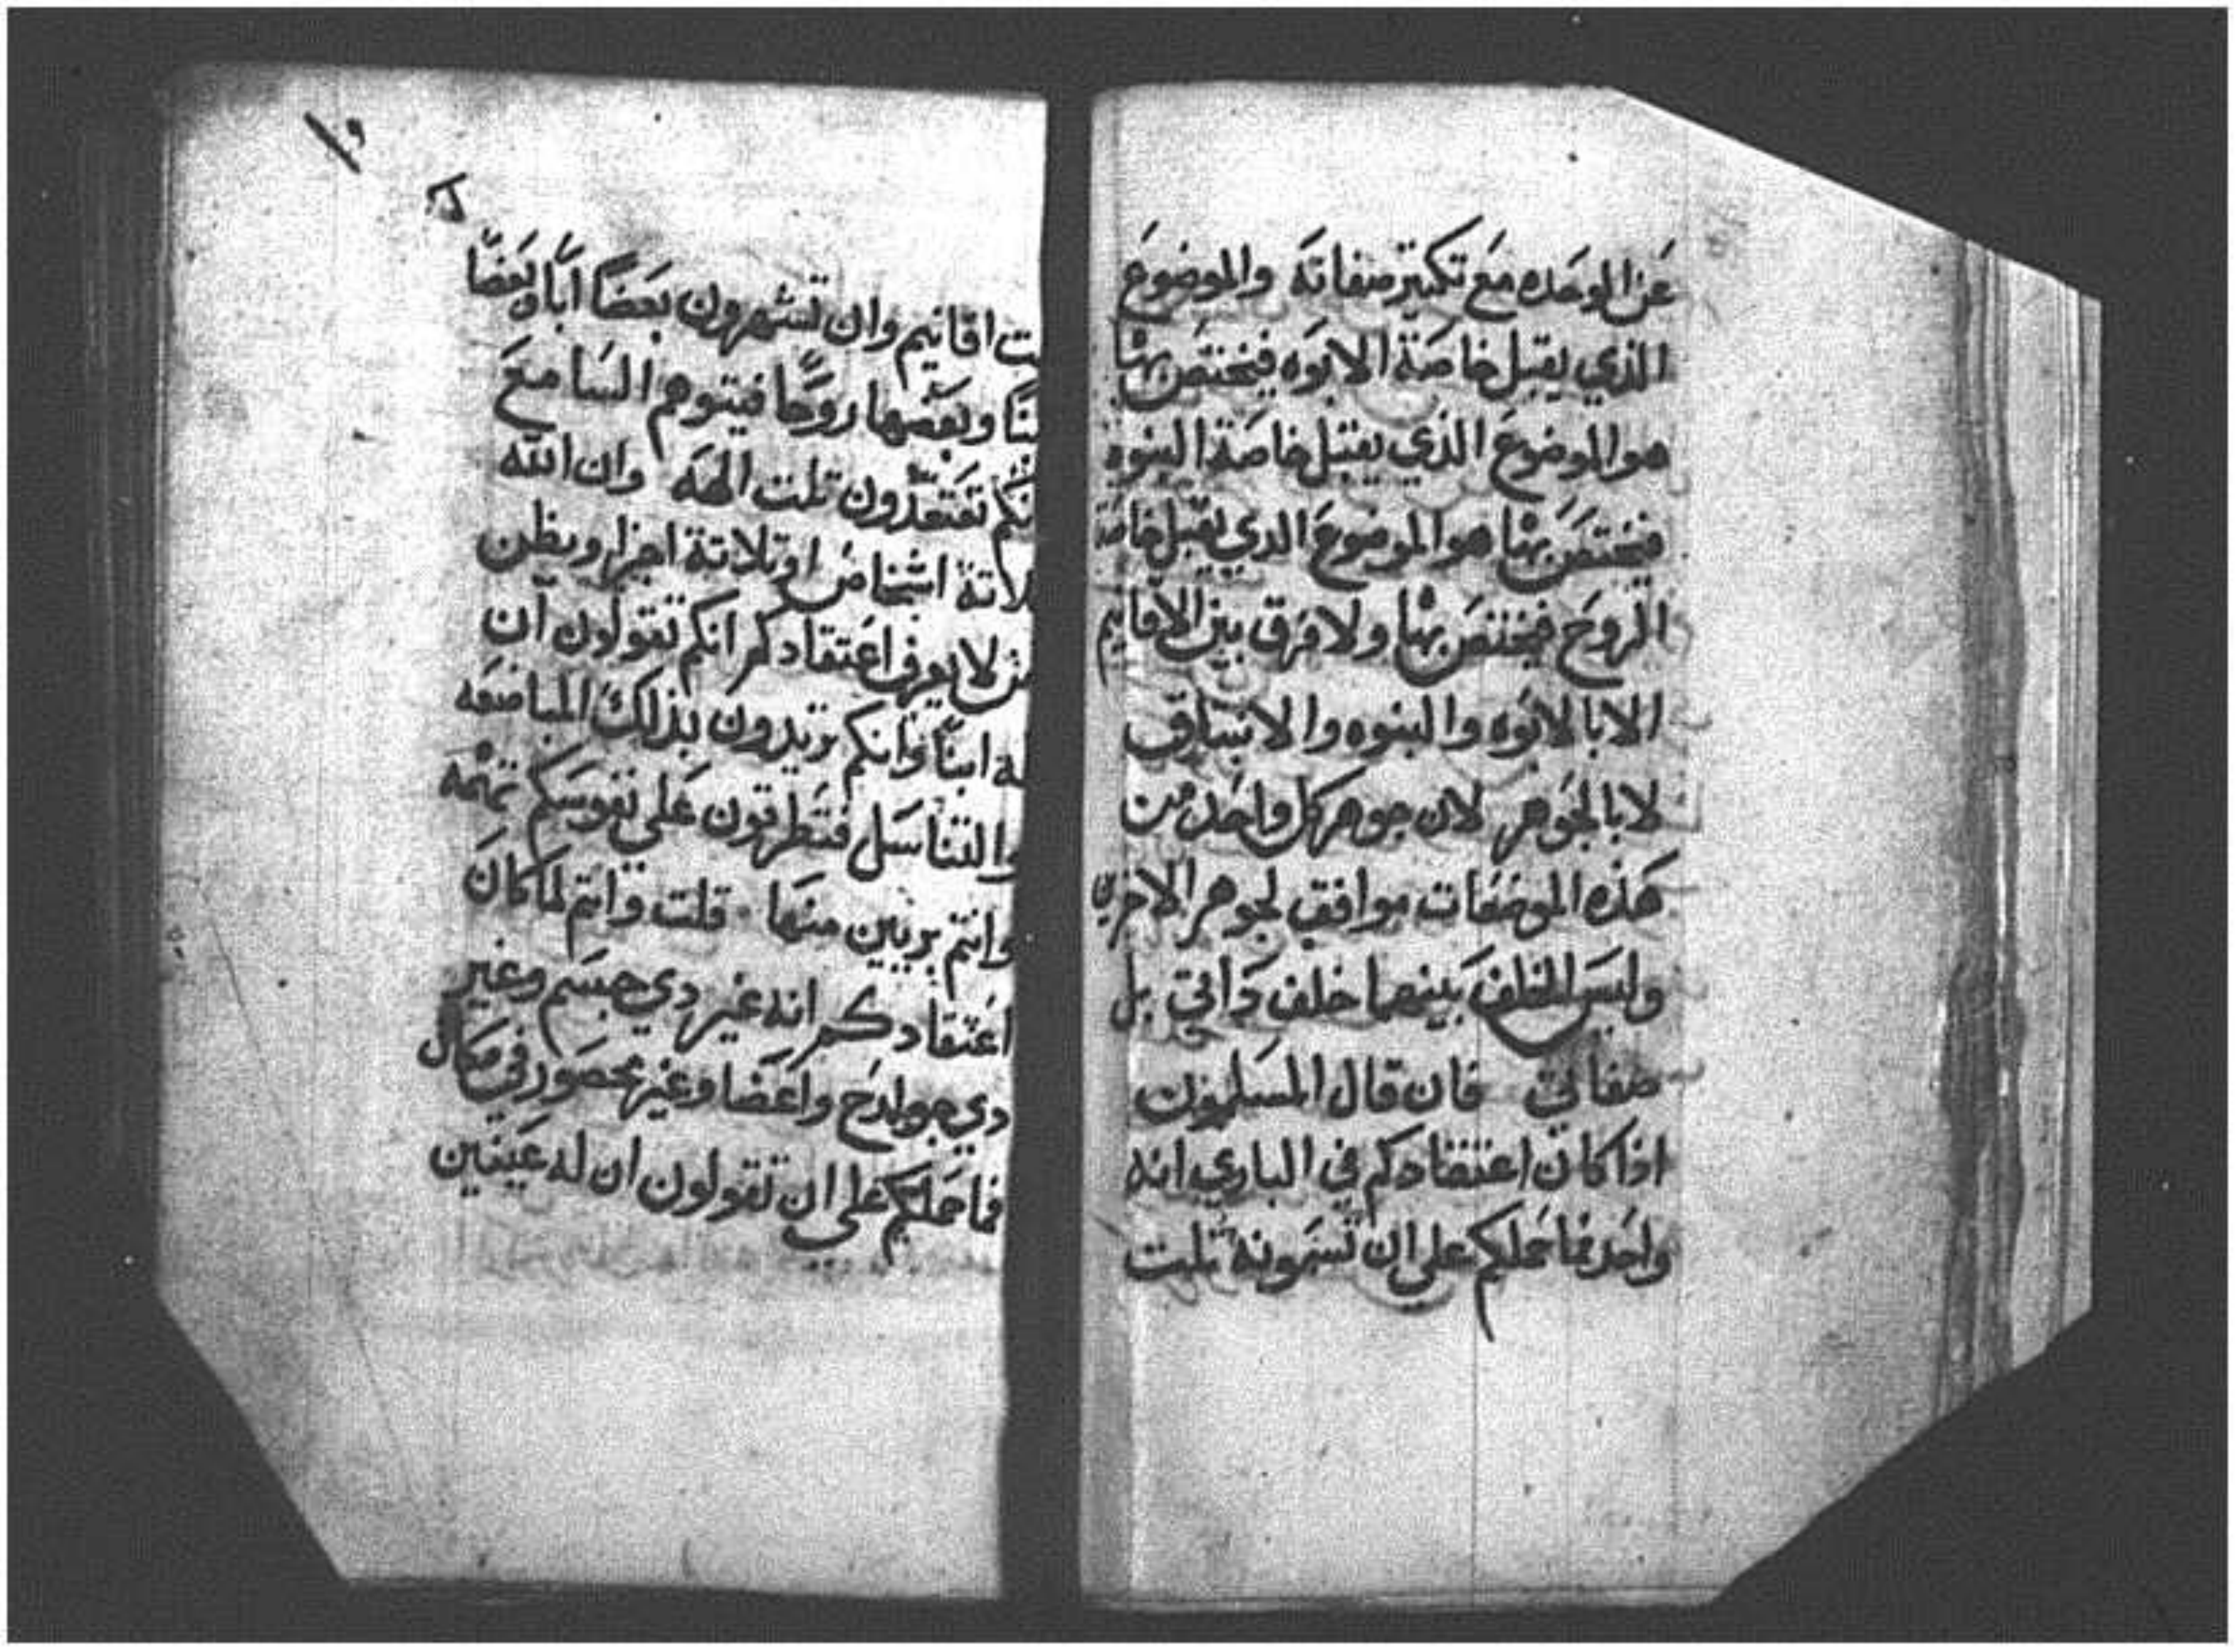 عن الوحده مع تكتير صفاته والموضوع
الذي يقبل خاصة الابوه فيختص بها
هو الموضوع الذي يقبل خاصة البنوه
فيختص بها هو الموضوع الدي يقبل خاصة
الروح فيختص بها ولا فرق بين الاقانيم
الا بالابوه والبنوه والانبتاق
لا بالجوهر لان جوهر كل واحد من
هذه الموضفات موافق لجوهر الاخرين
وليس الخلف بينهما خلف داتي بل
صفاتي فان قال المسلمون
اذا كان اعتقادكم في الباري انه
واحد فما حملكم علي ان تسمونه تلت
ـت اقانيم وان تسمون بعضا ابا وبعضا
ـنا وبعضها روحا فيتوهم السامع
نكم تعتقدون تلت الهه وان الله
ـلاتة اشخاص او تلاتة اجزا ويظن
من لا يعرف اعتقادكم انكم تقولون ان
له ابنا وانكم تريدون بذلك المباضعه
والتناسل فتطرقون علي نفوسكم تهمه
وانتم بريين منها قلت وانتم لما كان
اعتقادكم انه غير دي جسم وغير
دي جوارح واعضا وغير محصور في مكان
فما حملكم علي ان تقولون ان له عينين